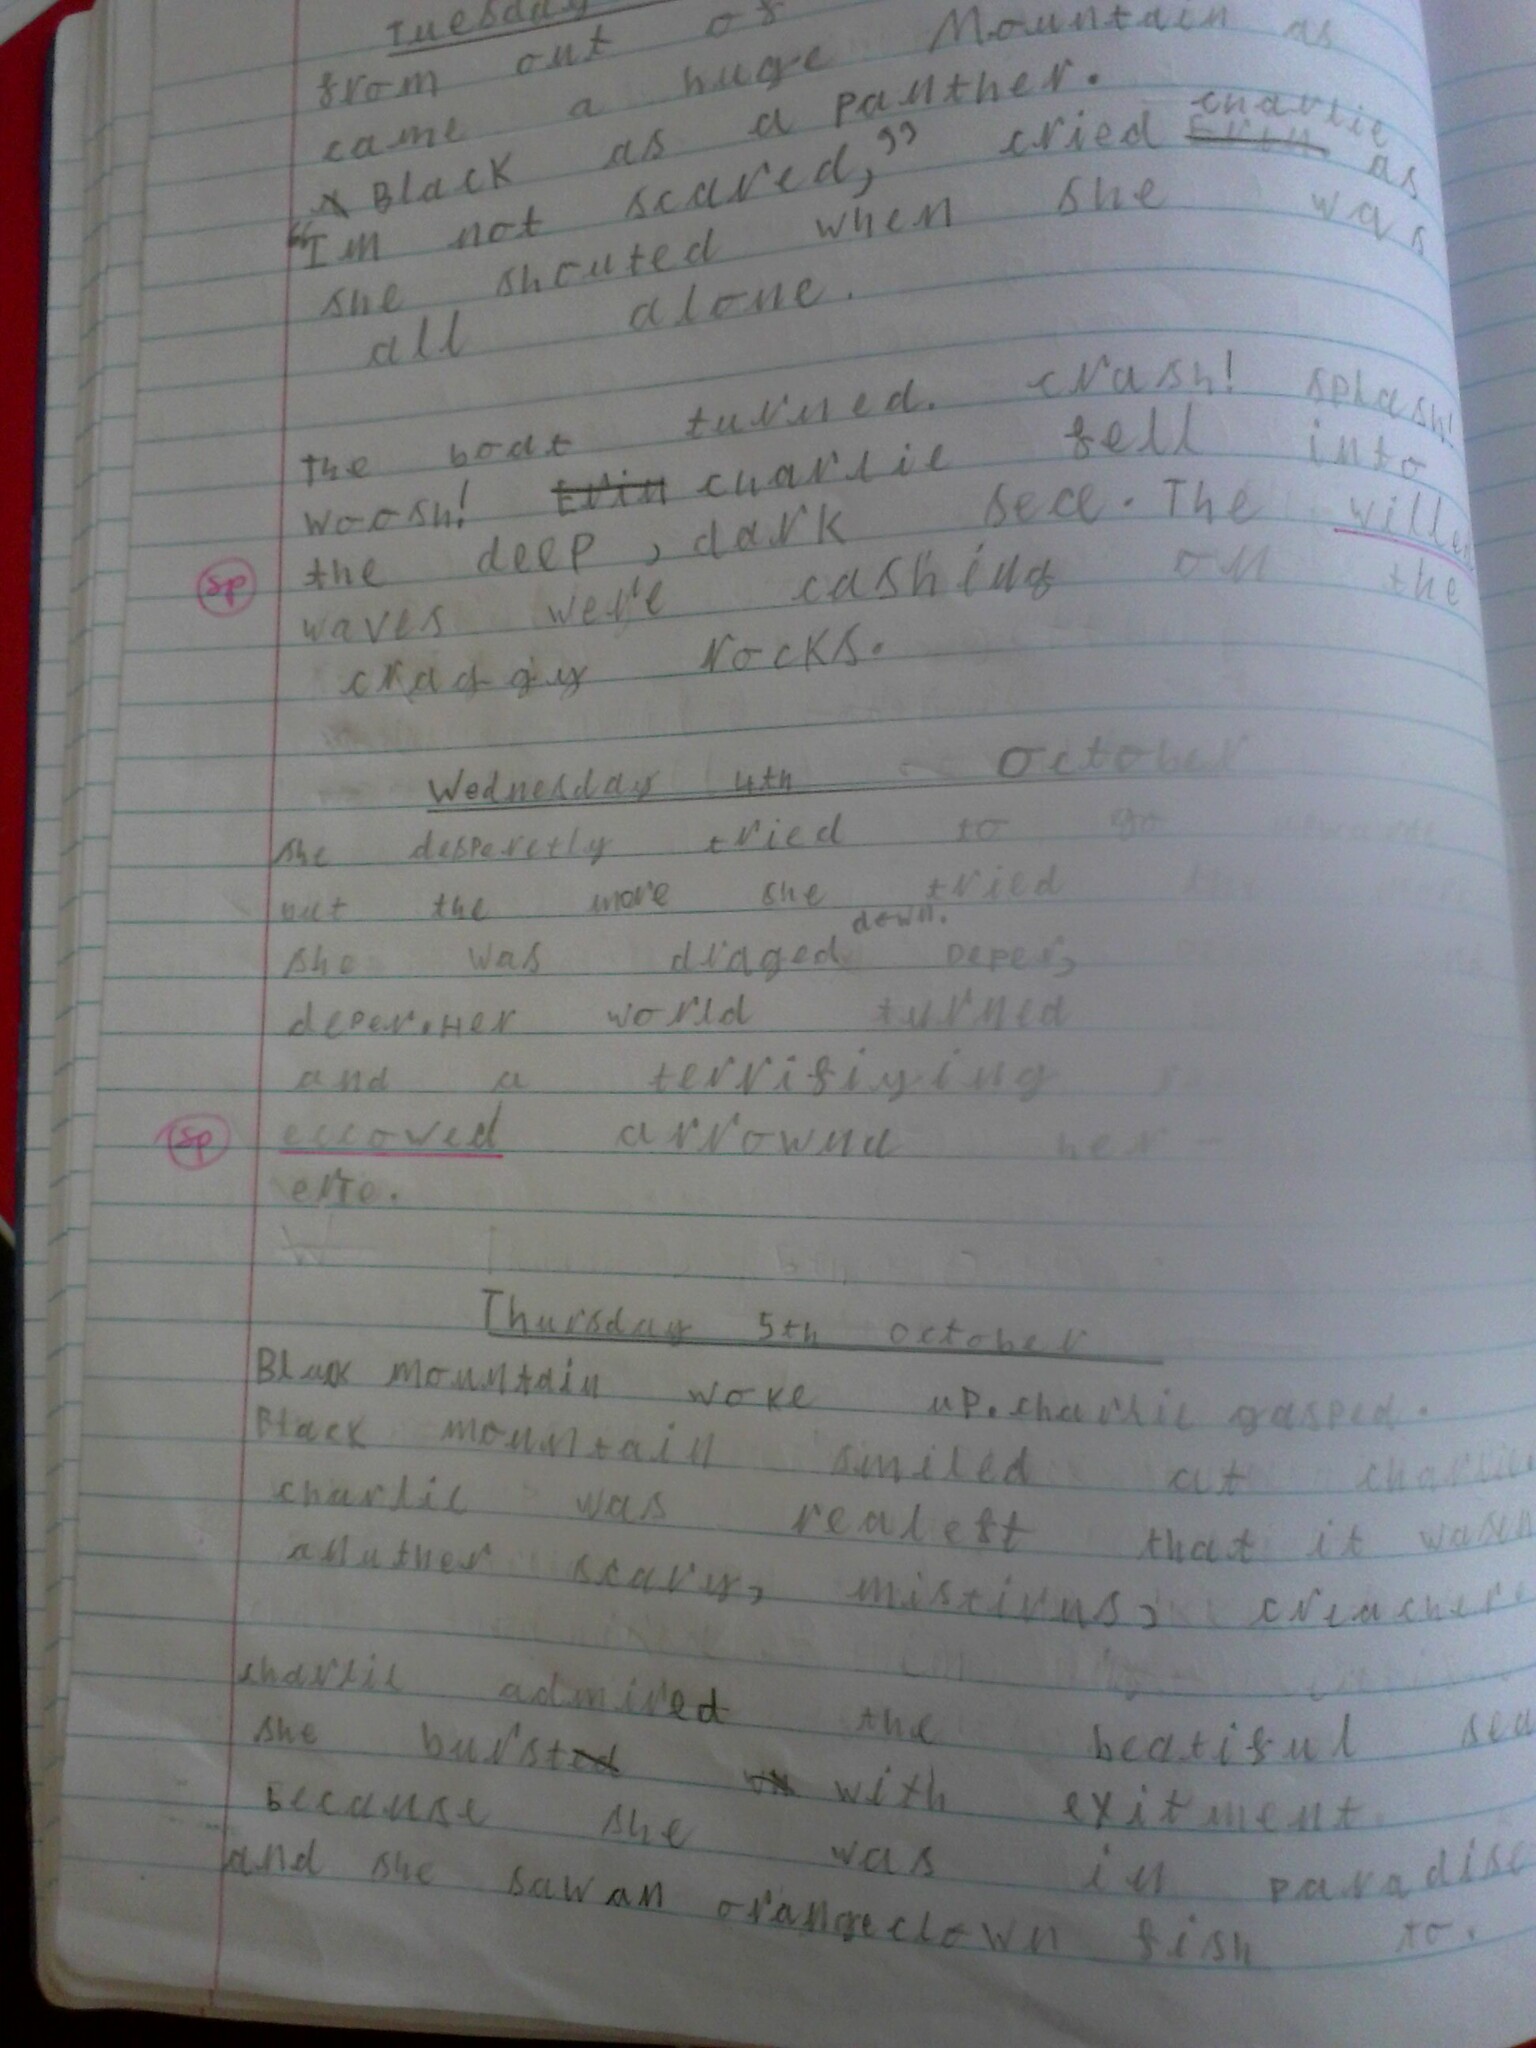 Tuesday
from out of
came a huge Mountain as
Black as a panther.
"Im not scared," cried Erin charlie as
she shouted when she was
all alone.
the boat turned. crash! splash!
woosh! Erin charlie fell into
the deep, dark see. The willed
sp
waves were cashing on the
craggy rocks.
Wednesday 4th October
she desperetly tried to go upwards
but the more she tried the more
she was draged down. Deper,
deper. Her world turned
and a terrifiying
sp eccowed arrownd her
erie.
Thursday 5th october
Black mountain woke up. charlie gasped.
Black mountain smiled at charlie
charlie was realeft that it wasen
anuther scary, mistirus, creacher
charlie admired the beatiful sea
she bursted with exitment
Because she was in paradise
and she saw an orange clown fish to.